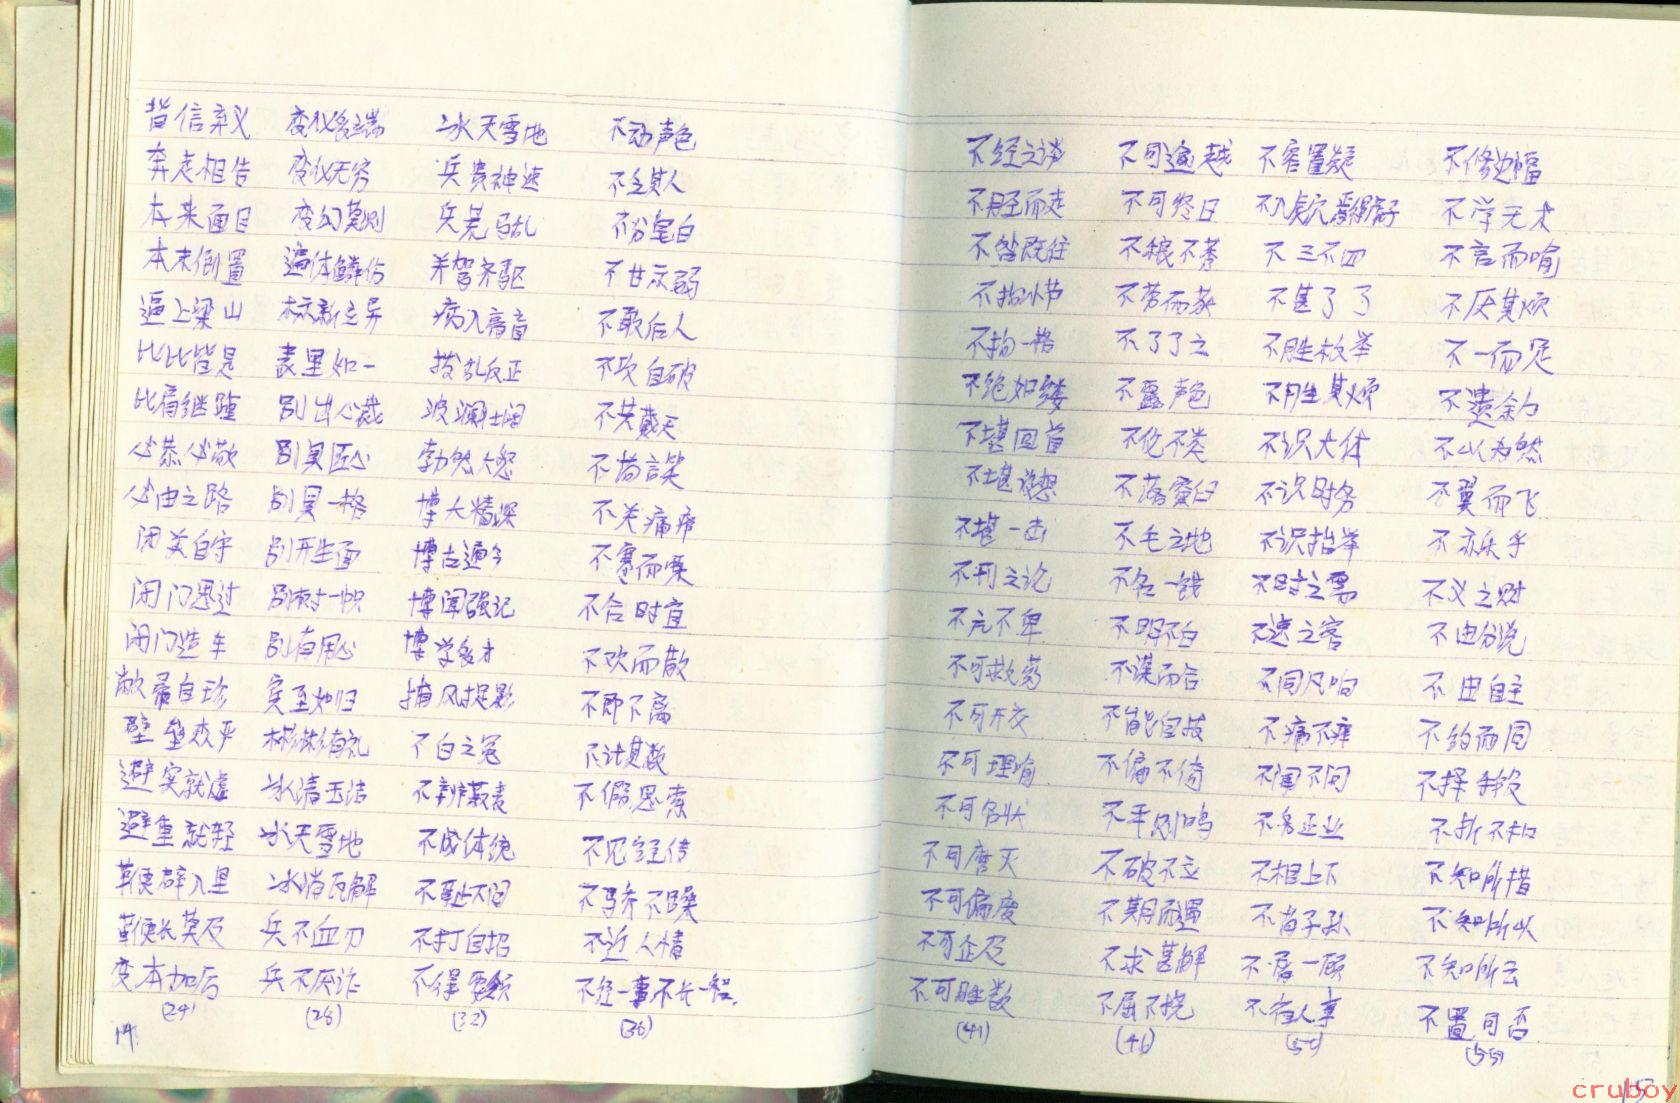 背信弃义 变化多端 冰天雪地 不动声色
奔走相告 变化无穷 兵贵神速 不乏其人
本来面目 变幻莫测 兵荒马乱 不分皂白
本末倒置 遍体鳞伤 并驾齐驱 不甘示弱
逼上梁山 标新立异 病入膏肓 不敢后人
比比皆是 表里如一 拨乱反正 不攻自破
比肩继踵 别出心裁 波澜壮阔 不共戴天
必恭必敬 别具匠心 勃然大怒 不苟言笑
必由之路 别具一格 博大精深 不关痛痒
闭关自守 别开生面 博古通今 不寒而栗
闭门思过 别树一帜 博闻强记 不合时宜
闭门造车 别有用心 博学多才 不欢而散
敝帚自珍 宾至如归 捕风捉影 不即不离
壁垒森严 彬彬有礼 不白之冤 不计其数
避实就虚 冰清玉洁 不辨菽麦 不假思索
避重就轻 冰天雪地 不成体统 不见经传
鞭辟入里 冰消瓦解 不耻下问 不骄不躁
鞭长莫及 兵不血刃 不打自招 不近人情
变本加厉 兵不厌诈 不得要领 不经一事不长一智.
(24) (28) (32) (36)
14
不经之谈 不可逾越 不容置疑 不修边幅
不胫而走 不可终日 不入虎穴焉得虎子 不学无术
不咎既往 不稂不莠 不三不四 不言而喻
不拘小节 不劳而获 不甚了了 不厌其烦
不拘一格 不了了之 不胜枚举 不一而足
不绝如缕 不露声色 不胜其烦 不遗余力
不堪回首 不伦不类 不识大体 不以为然
不堪设想 不落窠臼 不识时务 不翼而飞
不堪一击 不毛之地 不识抬举 不亦乐乎
不刊之论 不名一钱 不时之需 不义之财
不亢不卑 不明不白 不速之客 不由分说
不可救药 不谋而合 不同凡响 不由自主
不可开交 不能自拔 不痛不痒 不约而同
不可理喻 不偏不倚 不闻不问 不择手段
不可名状 不平则鸣 不务正业 不折不扣
不可磨灭 不破不立 不相上下 不知所措
不可偏废 不期而遇 不肖子孙 不知所以
不可企及 不求甚解 不屑一顾 不知所云
不可胜数 不屈不挠 不省人事 不置可否
(41) (46) (50) (55)
15
cruboy